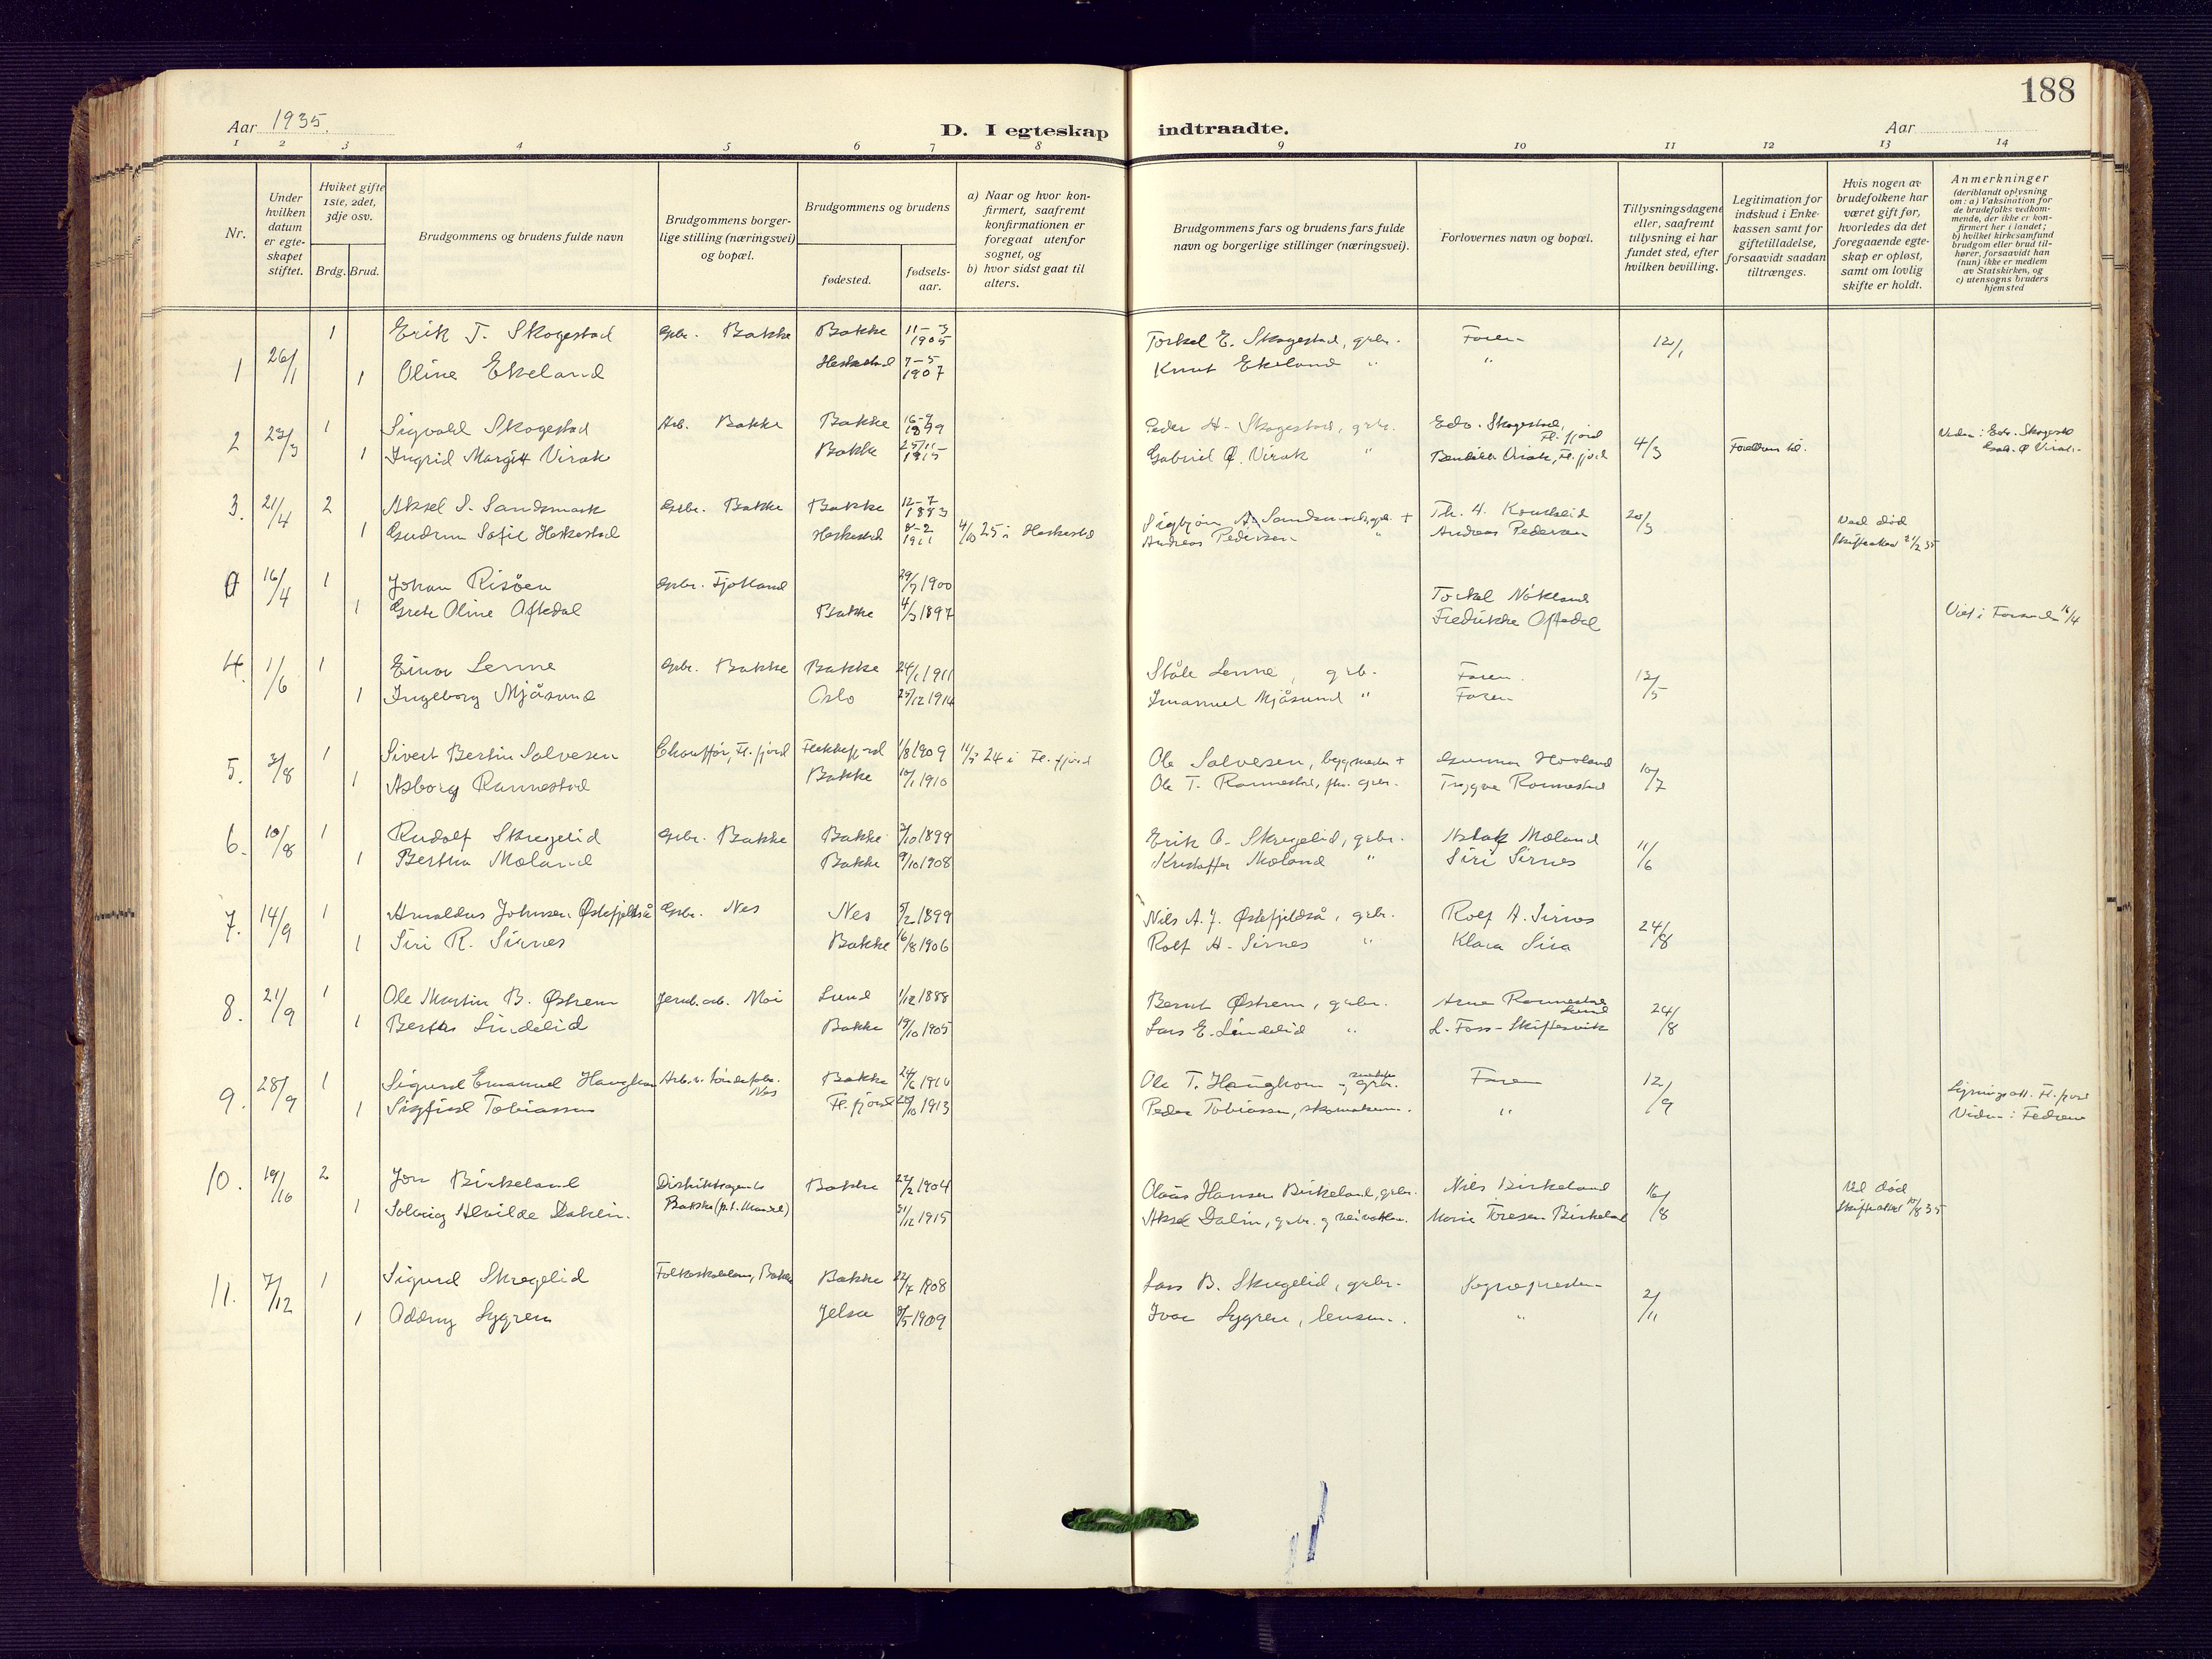 188
Aar 1935.
D. I egteskap indtraadte.
Aar
1 2 3 4 5 6 7 8 9 10 11 12 13 14
Nr.
Under hvilken datum er egteskapet stiftet.
Hviket gifte 1ste, 2det, 3dje osv.
Brdg. Brud.
Brudgommens og brudens fulde navn
Brudgommens borgerlige stilling (næringsvei) og bopæl.
Brudgommens og brudens
fødested.
fødselsaar.
a) Naar og hvor konfirmert, saafremt konfirmationen er foregaat utenfor sognet, og
b) hvor sidst gaat til alters.
Brudgommens fars og brudens fars fulde navn og borgerlige stillinger (næringsvei).
Forlovernes navn og bopæl.
Tillysningsdagene eller, saafremt tillysning ei har fundet sted, efter hvilken bevilling.
Legitimation for indskud i Enkekassen samt for giftetilladelse, forsaavidt saadan tiltrænges.
Hvis nogen av brudefolkene har været gift før, hvorledes da det foregaaende egteskap er opløst, samt om lovlig skifte er holdt.
Anmerkninger
(deriblandt oplysning om: a) Vaksination for de brudefolks vedkommende, der ikke er konfirmert her i landet; b) hvilket kirkesamfund brudgom eller brud tilhører, forsaavidt han (hun) ikke er medlem av Statskirken, og c) utensogns bruders hjemsted
1 26/1 1 Erik T. Skogestad Gbr. Bakke Bakke 11-3 1905 Torkel E. Skogestad, grbr. Faren 12/1
1 Oline Ekeland Heskestad 7-5 1907 Knut Ekeland " "
2 23/3 1 Sigvald Skogestad Arb. Bakke Bakke Peder H. Skogestad, grbr. Edv. Skogestad, Fl.fjord 4/3
1 Ingrid Margitt Virak Bakke 25/11 1915 Gabriel Ø. Virak " Virak, Fl.fjord
3. 21/4 2 Aksel S. Sandsmark Grbr. Bakke Bakke 12-7 1883 Sigbjørn A. Sandsmark, grb. + Th. H. 20/3 Ved død
1 Gudrun Sofie Heskestad Heskestad 8-2 1911 4/10 25 i Heskestad Andreas Pedersen " Andreas Pedersen Skifteattest 21/2 35
0 16/4 1 Johan Risøen Grbr. Fjotland 29/7 1900 Torkel Nøkland
1 Grete Oline Oftedal Bakke 4/3 1897 Fredrikke Oftedal Viet i Forsand 16/4
4. 1/6 1 Einar Lenne Grbr. Bakke Bakke 24/1 1911 Ståle Lenne, grb. Faren 13/5
1 Ingeborg Mjåsund Oslo 25/12 1914 Imanuel Mjåsund " Faren
5. 3/8 1 Sivert Bertin Salvesen Chauffør, Fl.fjord Flekkefjord 1/8 1909 24 i Fl.fjord Ole Salvesen, byggmester + Gunnar Hovland 10/7
1 Asborg Rannestad Bakke 10/1 1910 Ole T. Rannestad, grbr. Trygve Rannestad
6. 10/8 1 Rudolf Skregelid Grbr. Bakke Bakke 3/10 1899 Erik O. Skregelid, grbr. Aslak Moland 11/6
1 Bertha Moland Bakke 9/10 1908 Kristoffer Moland " Siri Sirnes
7. 14/9 1 Arnoldus Johnsen Østefjeldså Grbr. Nes Nes 5/2 1899 Nils A. J. Østefjeldså, grbr. Rolf A. Sirnes 24/8
1 Siri R. Sirnes Bakke 16/8 1906 Rolf A. Sirnes " Klara Sira
8. 21/9 1 Ole Martin B. Østrem Jernb.arb. Moi Lund 1/12 1888 Bernt Østrem, grbr. Arne Rannestad Lund 24/8
1 Bertha Lindelid Bakke 19/10 1905 Lars E. Lindelid " L. Foss-Skiftesvik
9. 28/9 1 Sigurd Emanuel Haughom Arb. v. Nes Bakke 24/6 1910 Ole T. Haughom, snekker og grbr. Faren 12/9
1 Sigfrid Tobiassen Fl.fjord 1913 Peder Tobiassen, skomaker. " Fl.fjord
10. 19/10 2 Jon Birkeland Distriktsagent Bakke 22/2 1904 Olaus Hansen Birkeland, grbr. Nils Birkeland 16/8 Ved død
1 Solveig Alvilde Dahlin. Bakke (p.t. Mandal) 31/12 1915 Aksel Dalin, grbr. og veivokter. Marie Toresen Birkeland Skifteattest 35
11. 7/12 1 Sigurd Skregelid Folkeskolelærer, Bakke Bakke 22/4 1908 Lars B. Skregelid, grbr. Sogneprest 2/11
1 Oddny Lygren Jelsa 1909 Ivar Lygren, lensm. "